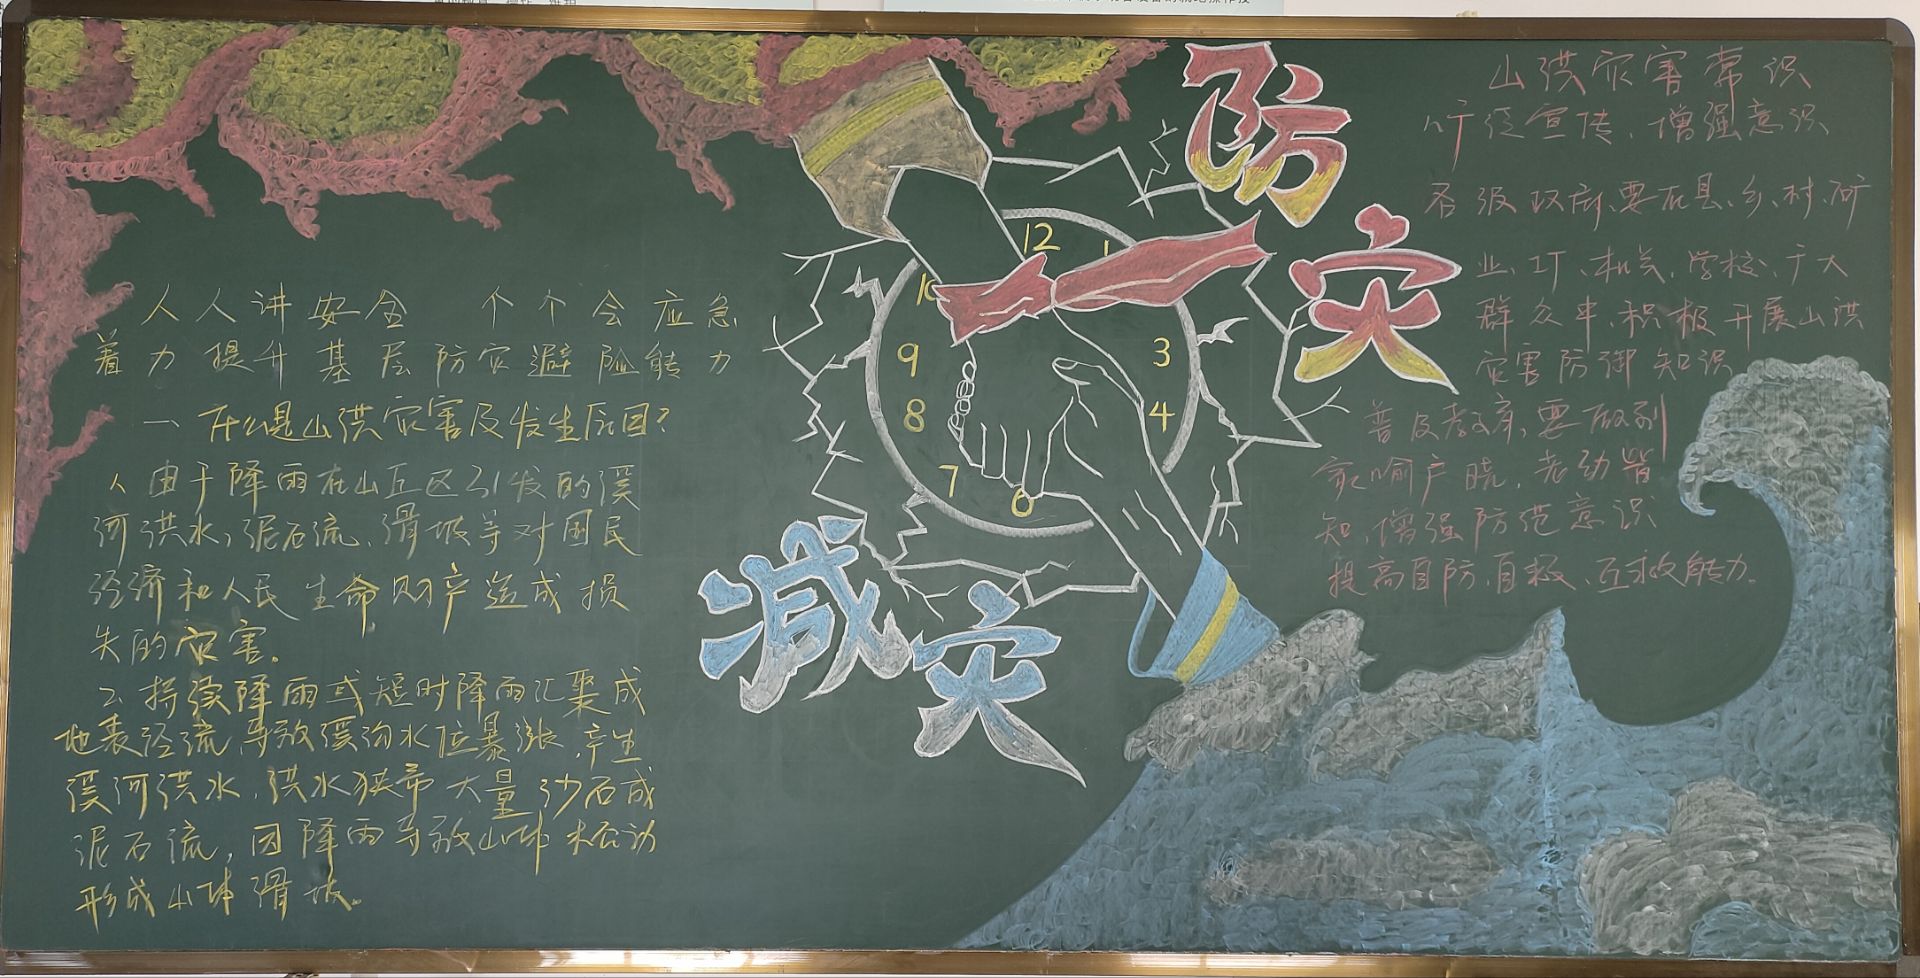 人人讲安全 个个会应急
着力提升基层防灾避险能力
一、什么是山洪灾害及发生原因?
1、由于降雨在山丘区引发的溪
河洪水,泥石流、滑坡等对国民
经济和人民生命财产造成损
失的灾害。
2、持续降雨或短时降雨汇聚成
地表径流,导致溪沟水位暴涨,产生
溪河洪水,洪水挟带大量沙石成
泥石流,因降雨导致山体松动
形成山体滑坡。
防灾
减灾
12
1
10
9
8
7
6
3
4
山洪灾害常识
广泛宣传、增强意识
各级政府要在县、乡、村、矿
业、工厂、机关、学校、广大
群众中,积极开展山洪
灾害防御知识
普及教育,要做到
家喻户晓,老幼皆
知,增强防范意识
提高自防、自救、互救能力。